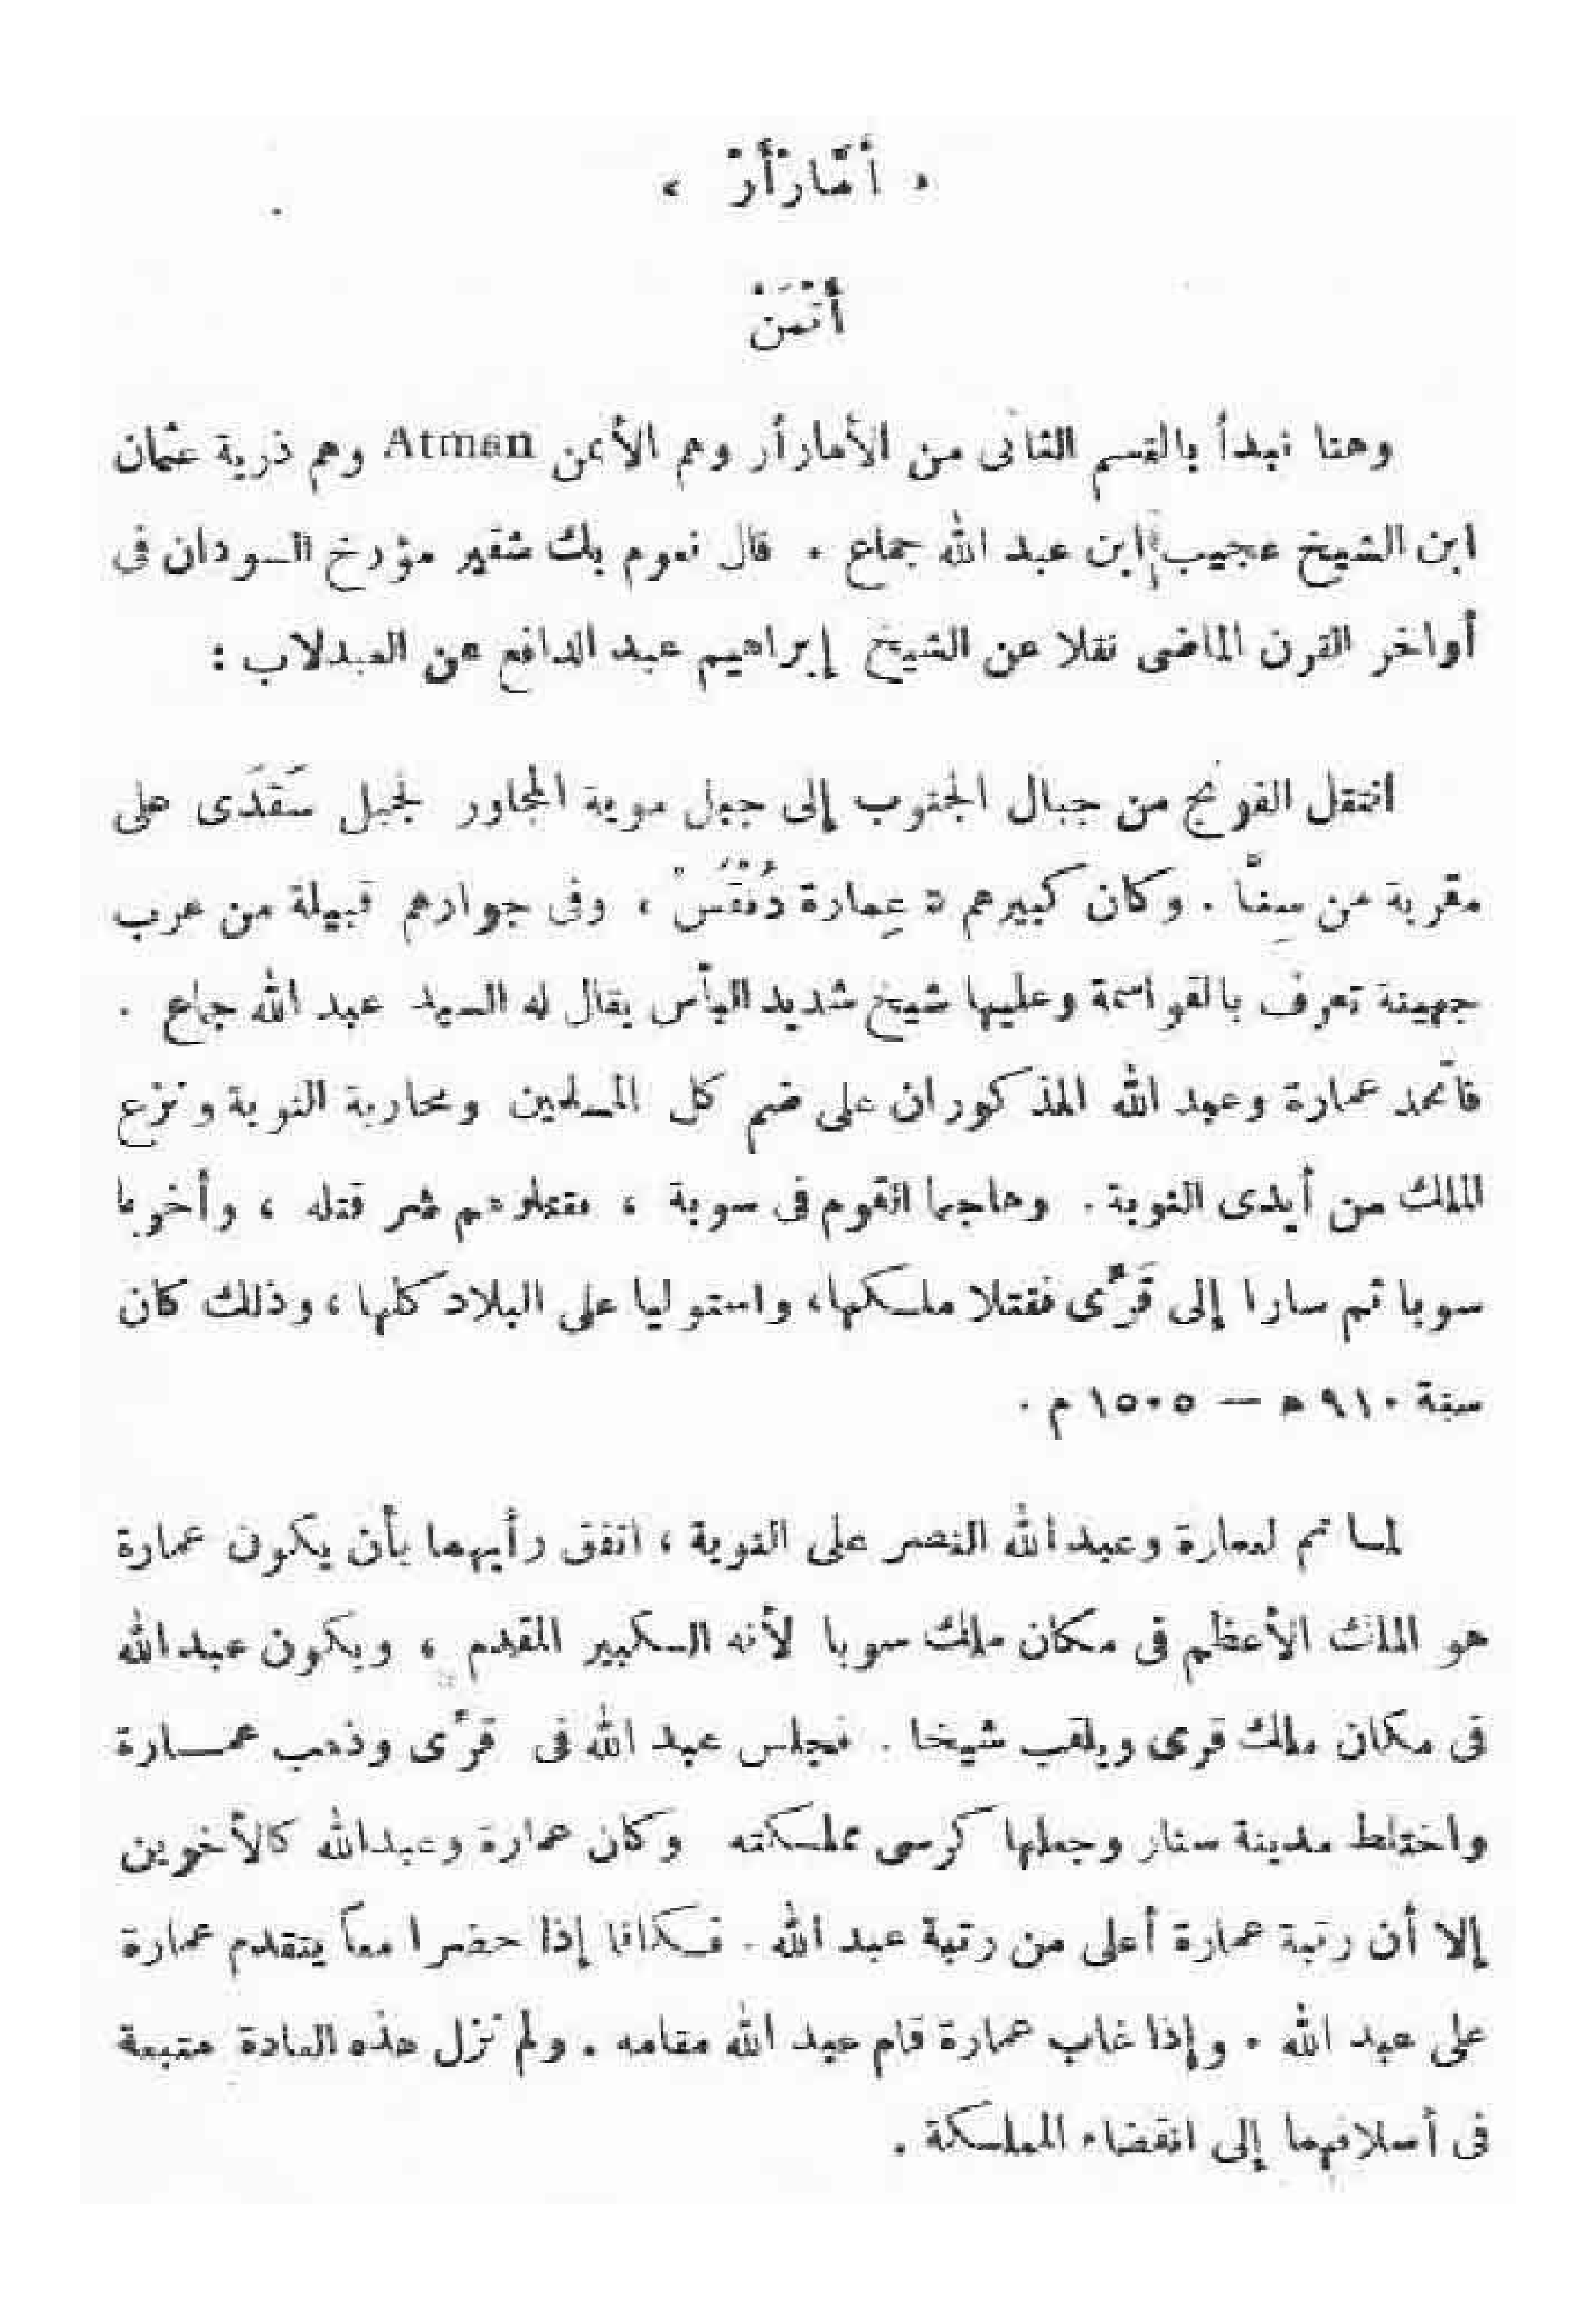 « أمَّارْأَرْ »
أتْمَنْ
وهنا نبدأ بالقسم الثانى من الأمارأر وهم الأتمن Atman وهم ذرية عثمان
ابن الشيخ عجيب ابن عبد الله جماع . قال نعوم بك شقير مؤرخ السودان فى
أواخر القرن الماضى نقلا عن الشيخ إبراهيم عبد الدافع عن العبدلاب :
انتقل الفونج من جبال الجنوب إلى جبل موية المجاور لجبل سَقَدَى على
مقربة من سِنَّا . وكان كبيرهم د عِمارة دُنْقُسْ ، وفى جوارهم قبيلة من عرب
جهينة تعرف بالقواسمة وعليها شيخ شديد البأس يقال له السيد عبد الله جماع .
فاتّحد عمارة وعبد الله المذكوران على ضم كل المسلمين ومحاربة النوبة ونزع
الملك من أيدى النوبة . وهاجما القوم فى سوبة ، فقتلوهم شر قتله ، وأخربا
سوبا ثم سارا إلى قَرِّى فقتلا ملكها ، واستوليا على البلاد كلها ، وذلك كان
سنة ٩١٠ ه — ١٥٠٥ م .
لما تم لعمارة وعبد الله النصر على النوبة ، اتفق رأيهما بأن يكون عمارة
هو الملك الأعظم فى مكان ملك سوبا لأنه الكبير المقدم ، ويكون عبد الله
فى مكان ملك قرى ويلقب شيخا . فجلس عبد الله فى قرِّى وذهب عمارة
واختلط مدينة سنار وجعلها كرسى مملكته وكان عمارة وعبد الله كالأخوين
إلا أن رتبة عمارة أعلى من رتبة عبد الله . فكانا إذا حضرا معاً يتقدم عمارة
على عبد الله . وإذا غاب عمارة قام عبد الله مقامه . ولم تزل هذه العادة متبعة
فى أسلافهما إلى انقضاء المملكة .